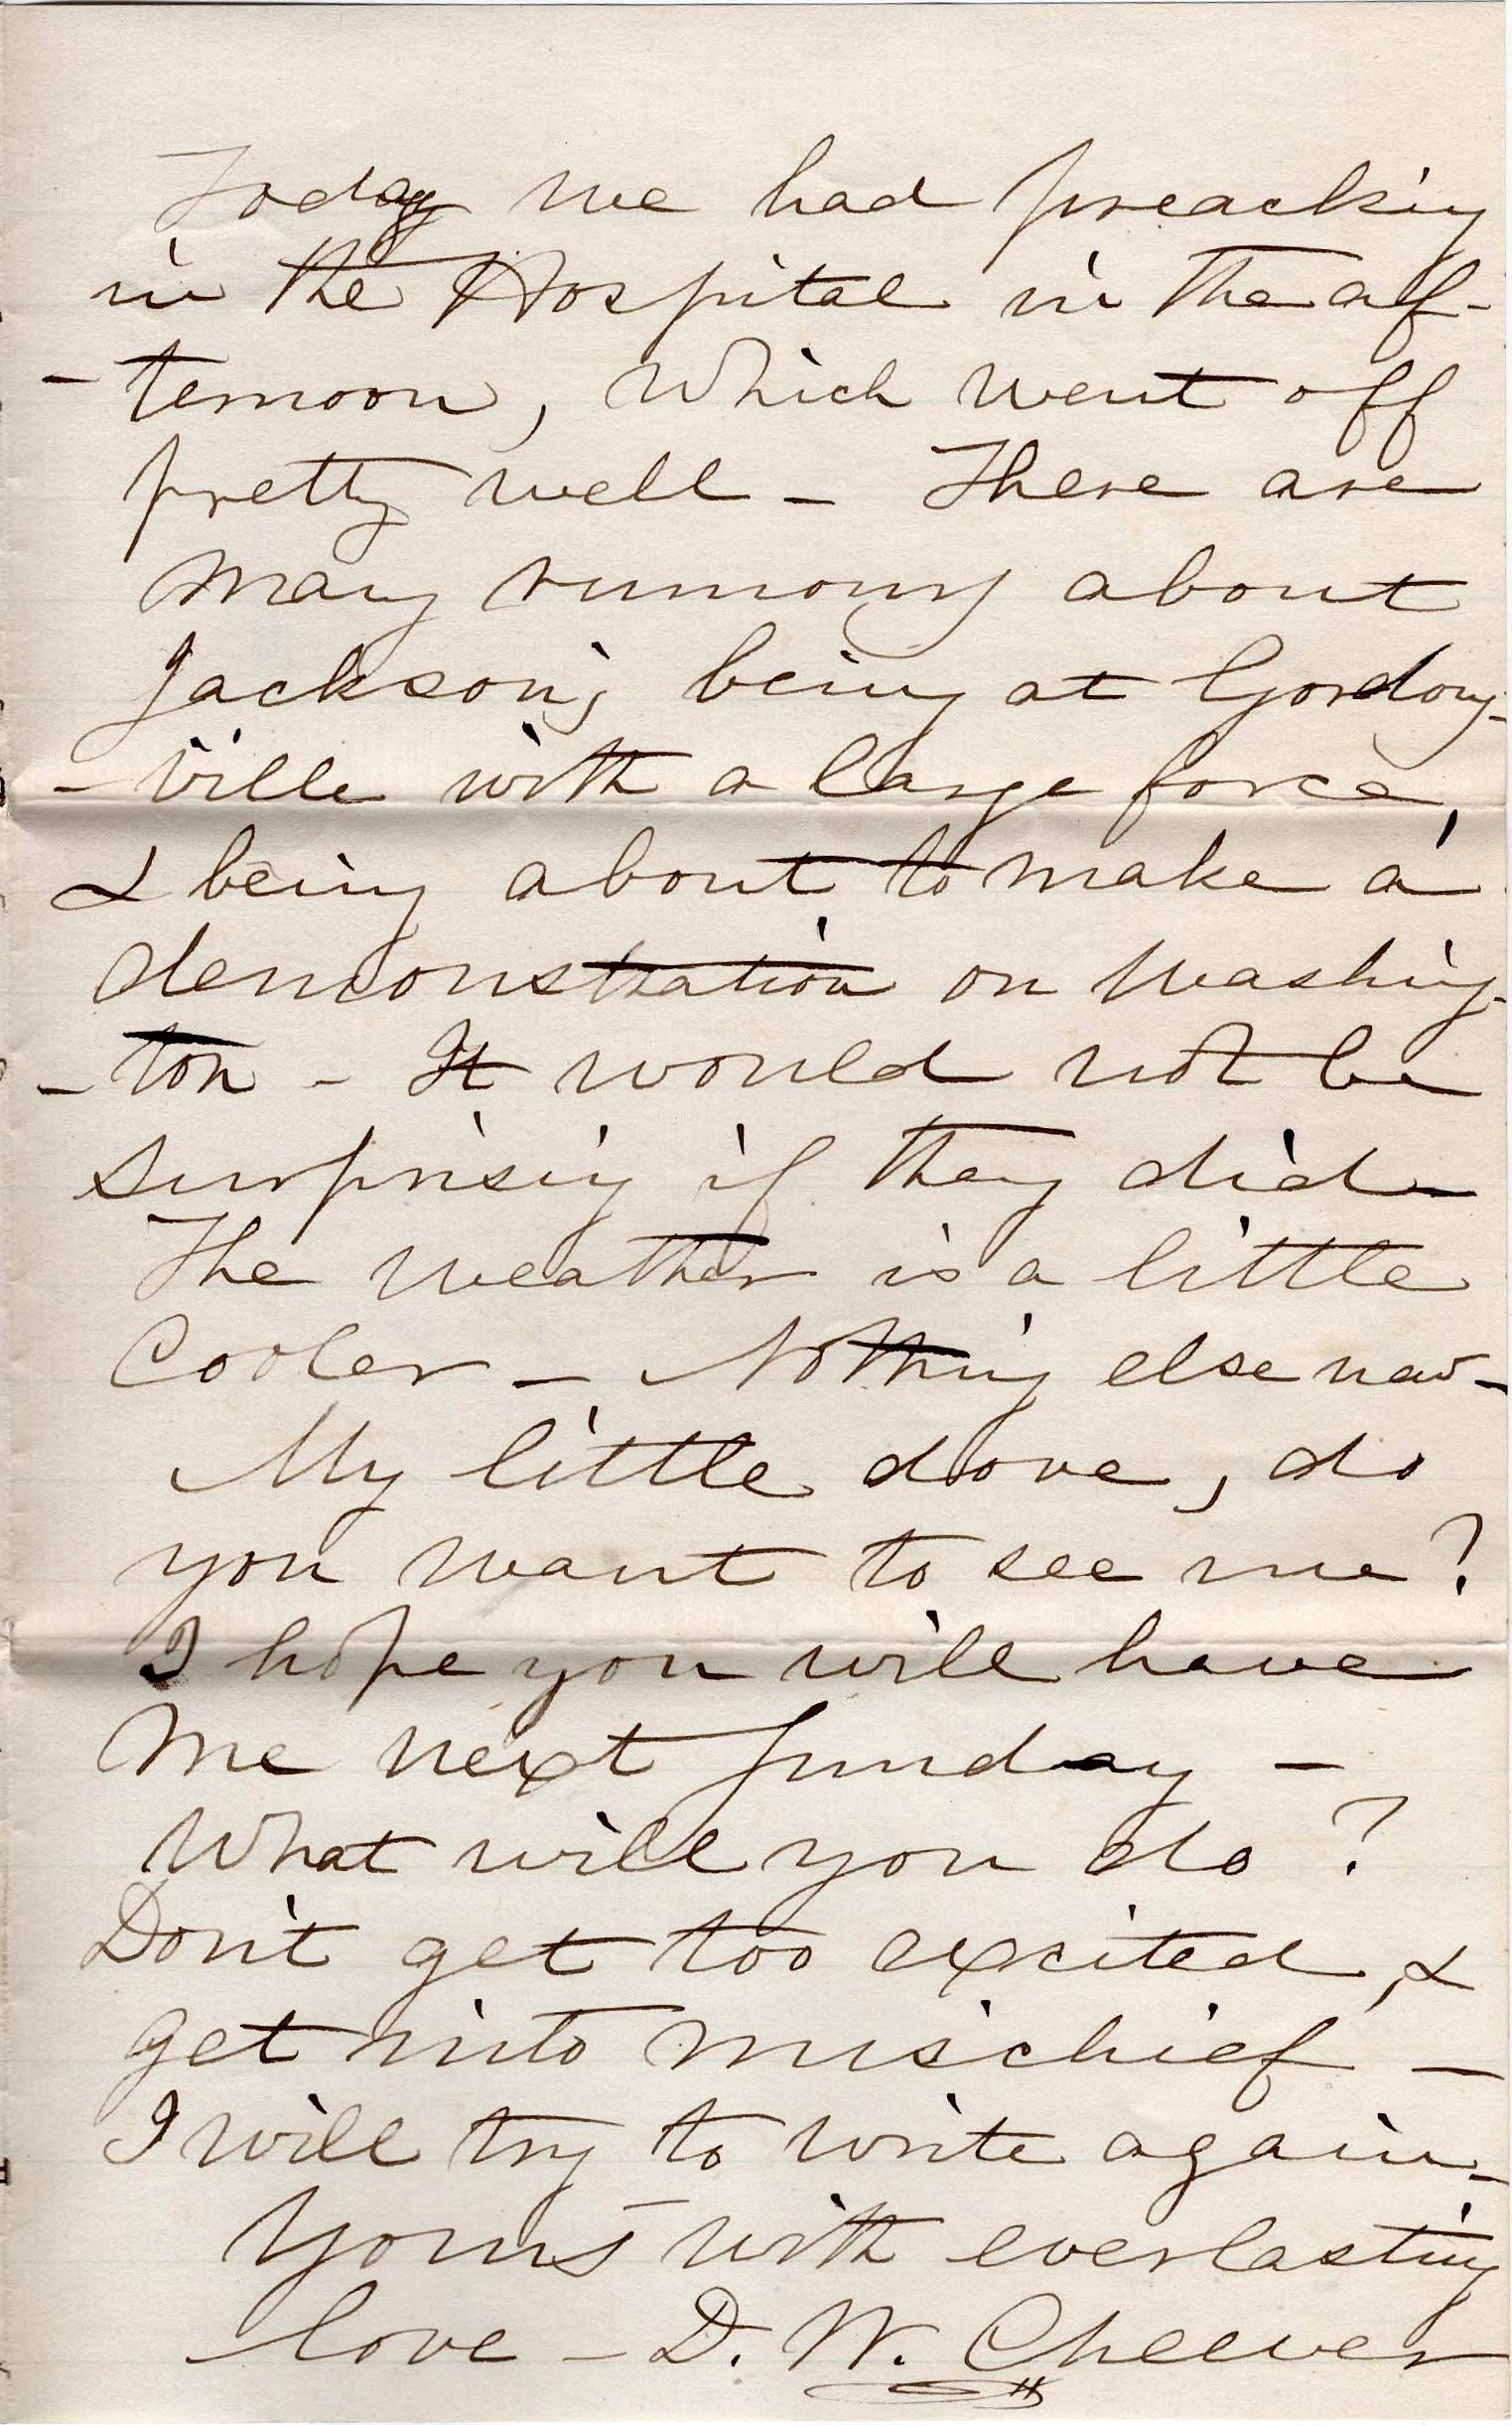 Today we had preaching
in the Hospital in the af-
-ternoon, which went off
pretty well - There are
many rumours about
Jackson's being at Gordons-
-ville with a large force,
& being about to make a
demonstration on Washing-
-ton - It would not be
surprising if they did -
The weather is a little
cooler - Nothing else new -
My little dove, do
you want to see me?
I hope you will have
me next Sunday -
What will you do?
Don't get too excited, &
get into mischief -
I will try to write again -
Yours with everlasting
love - D. W. Cheever